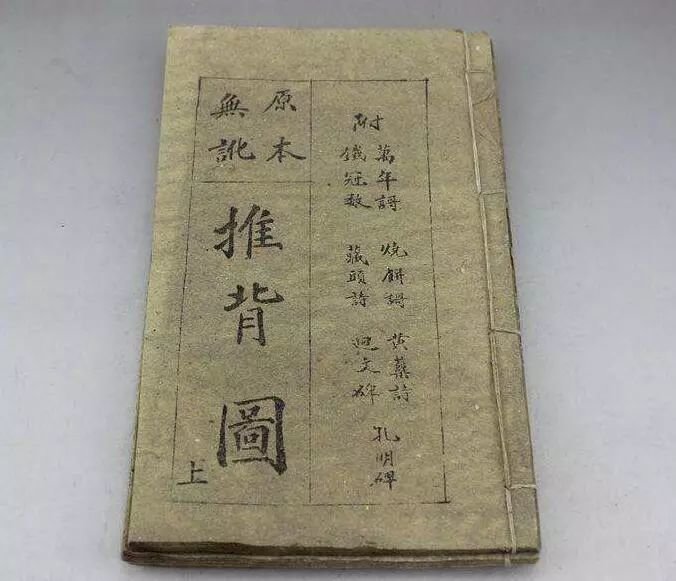 附
萬年謌 燒餅謌 黄蘗詩
鐵冠数 藏頭詩 廻文碑
孔明碑
原本
無訛
推背圖
上